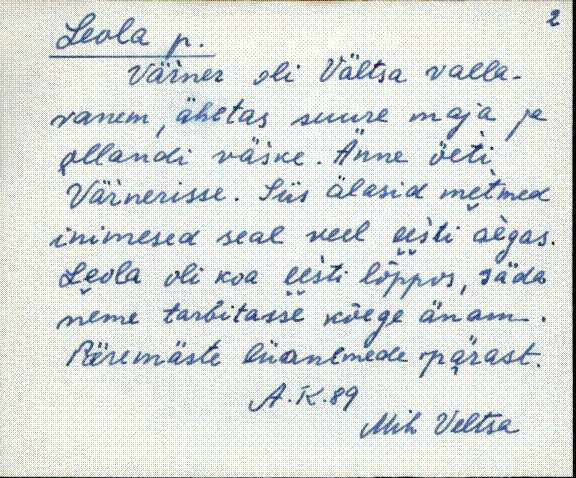 2
Leola p.
Värner oli Vältsa valla-
vanem, ähetas suure maja ja
ollandi väske. Änne öeti
Värnerisse. Siis älasid metmed
inimesed seal veel eesti aegas.
Leola oli koa eesti lõppos, säda
neme tarbitasse kõege änam.
lüanlmede pärast.
A.K.89
Mih Veltsa